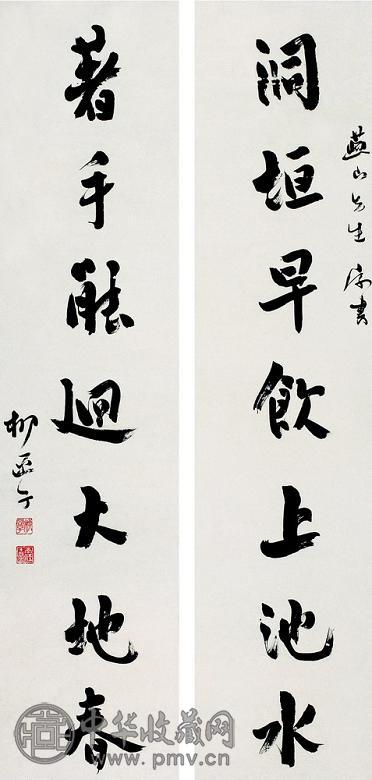 燕山先生 書
洞垣早飲上池水
著手能迴大地春
柳亞子
中华收藏网
www.pmv.cn